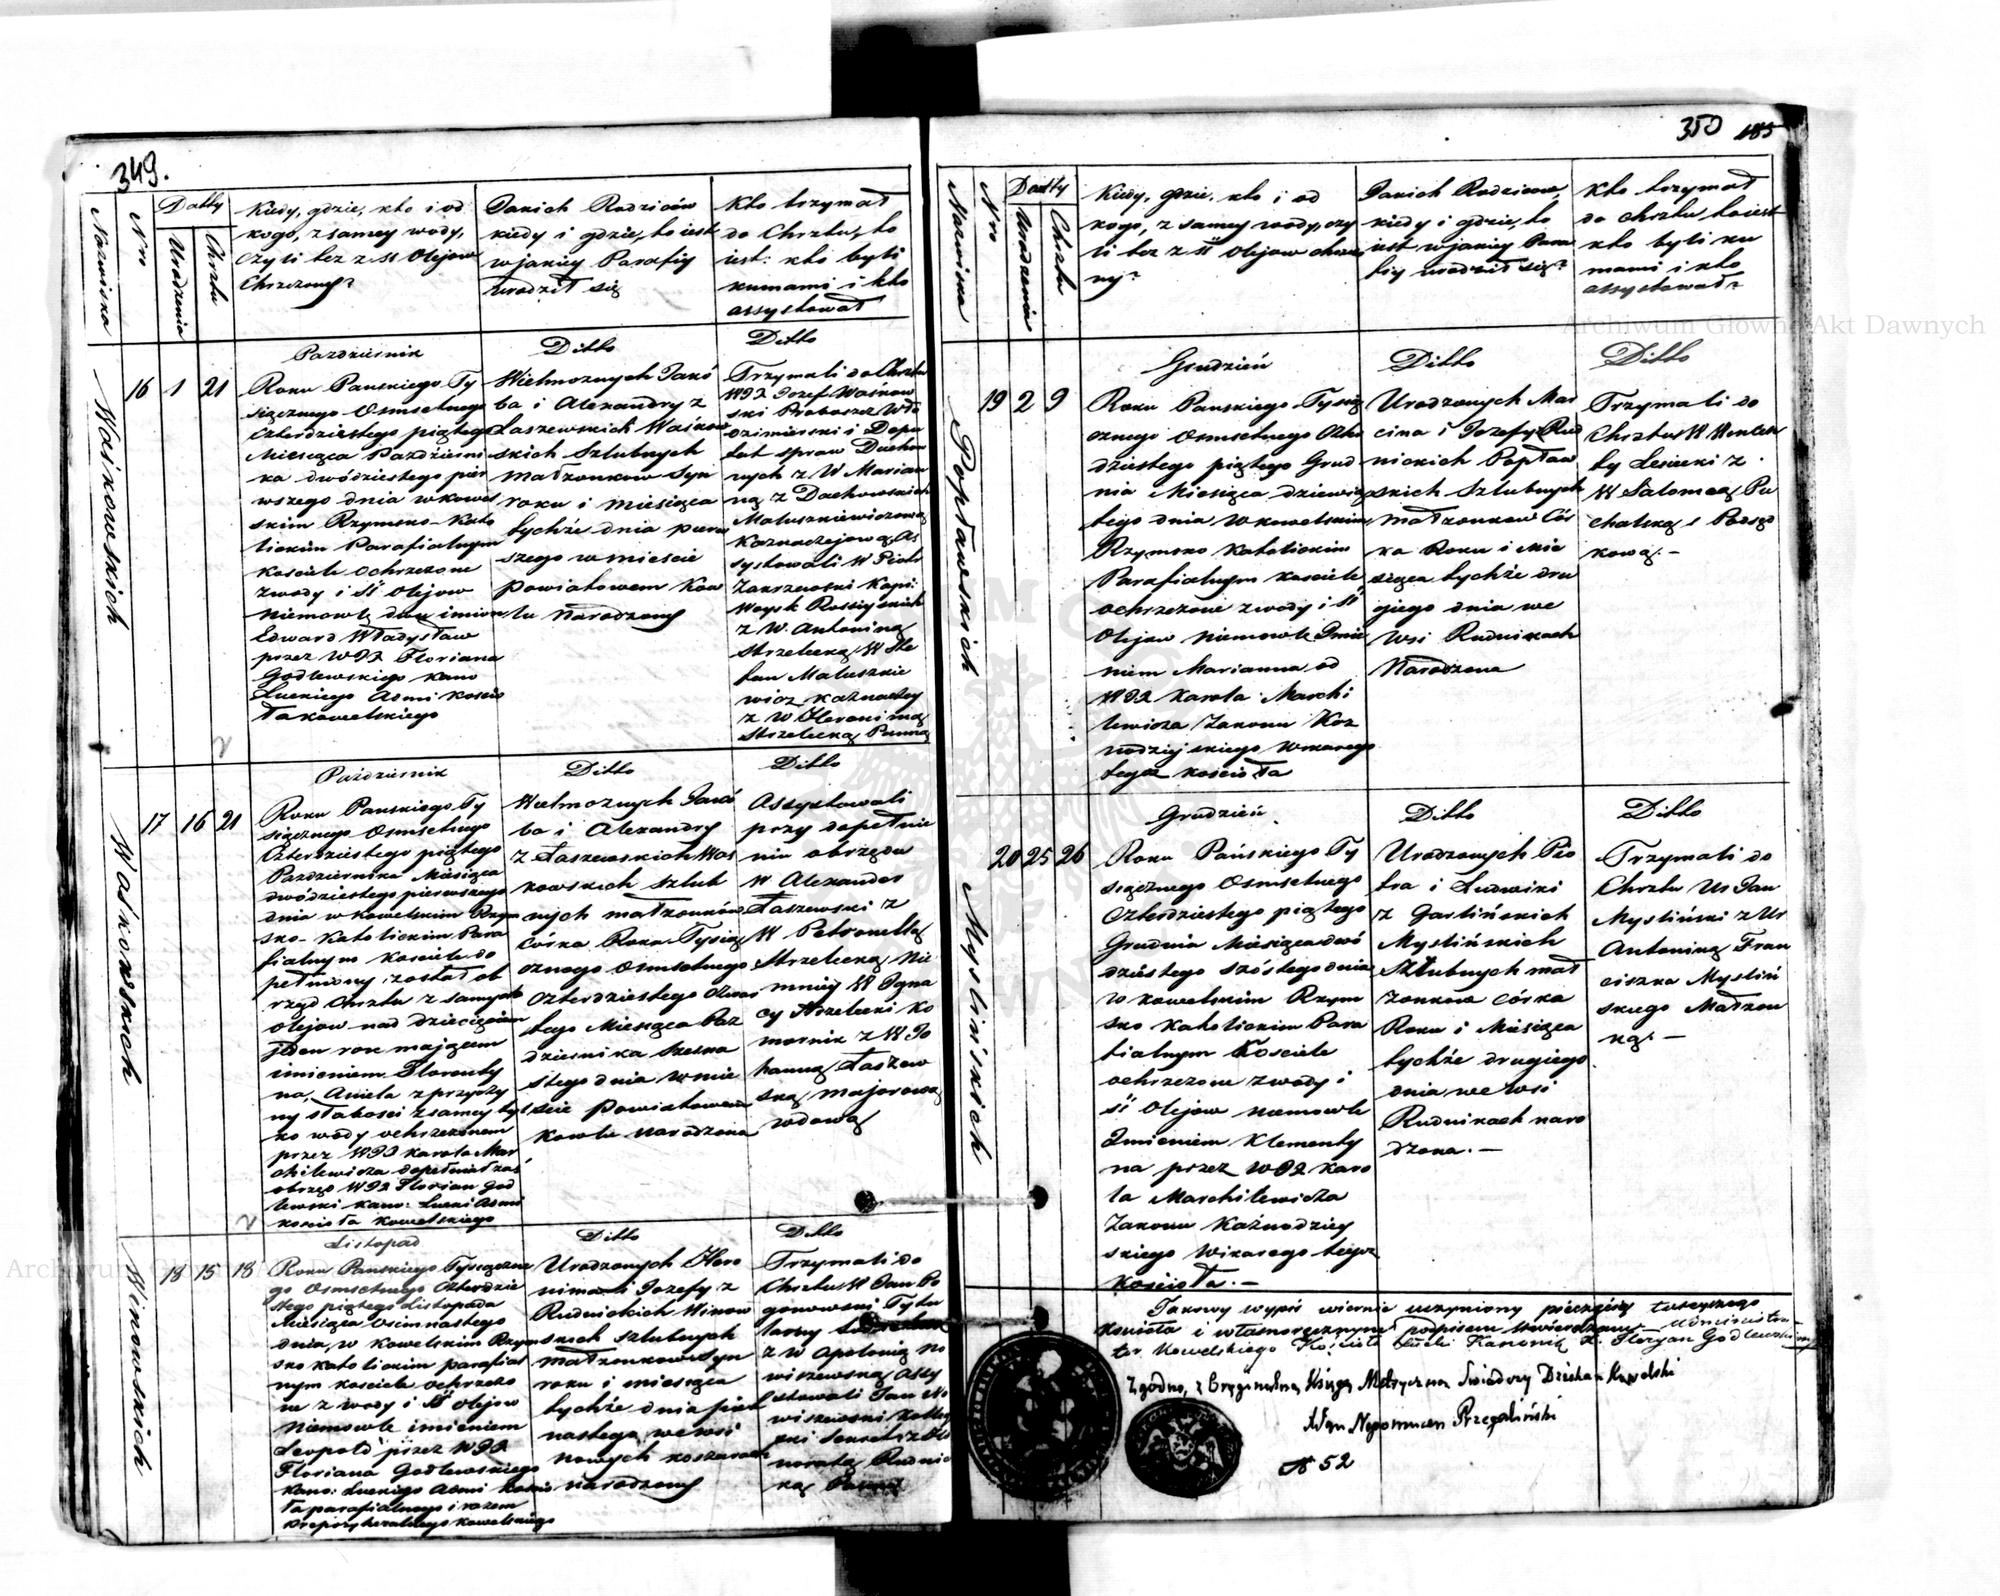 349.
Nazwiska
Nro
Datty
Urodzenia
Chrztu
Kiedy, gdzie, kto i od
kogo, z samey wody,
Czyli też z SS Olejow
Chrzczony?
Jakich Rodziców
kiedy i gdzie, to iest
w jakiey Parafij
Urodził się
Kto trzymał
do Chrztu, to
iest: kto byli
kumami i kto
assystował
Waśkowskich
16 1 21
Pazdziernik
Roku Panskiego Ty
siącznego Osmsetnego
Czterdziestego piątego
Miesiąca Pazdzierni
ka dwódziestego pier
wszego dnia w Kowel
skim Rzymsko-Kato
lickim Parafialnym
Kosciele Ochrzczone
z wody i SS Olejow
Niemowle dwu imion
Edward Władysław
przez WJX Floriana
Godlewskiego Kano
Łuckiego Admi Koscio
ła Kowelskiego
Ditto
Wielmoznych Jakó
ba i Alexandry z
Łaszewskich Waśkow
skich Szlubnych
Małzonkow Syn
roku i miesiąca
tychże dnia pierw
szego w mieście
Powiatowem Kow
lu Narodzony
Ditto
Trzymali do Chrztu
WJX Jozef Waśkow
ski Proboszcz Wło
dzimierski i Depu
tat spraw Duchow
nych z W Maryan
ną z Dachowskich
Matuszkiewiczową
Kaznaczejową, As
systowali W Piotr
Zakrzewski Kapi:
Woysk Rossiyskich
z W. Antoniną
Strzelecką, W Ste
fan Matuszkie
wicz Kaznaczey
z W Hieronimą
Strzelecką Panną
Waśkowskich
17 16 21
Pazdziernik
Roku Panskiego Ty
siącznego Osmsetnego
Czterdziestego piątego
Pazdziernika Miesiąca
dwódziestego pierwszego
dnia w Kowelskim Rzym
sko-Katolickim Para
fialnym Kosciele do
pełniony został ob
rząd Chrztu z samych
olejow nad dziecięciem
jeden rok mającem
imieniem Florenty
na, Aniela z przyczy
ny słabosci z samey tyl
ko wody ochrzczonem
przez WJX Karola Mar
chilewicza dopełniał zaś
obrząd WJX Florian God
lewski Kano: Łucki Admi
Kosciola Kowelskiego
Ditto
Wielmoznych Jakó
ba i Alexandry
z Łaszewskich Waś
kowskich Szlub
nych małzonków
Córka Roku Tysią
cznego Osmsetnego
Czterdziestego Czwar
tego Miesiąca Paz
dziernika Szesna
stego dnia w mie
ście Powiatowem
Kowlu Narodzona
Ditto
Assystowali
przy dopełnie
niu obrzędu
W Alexander
Łaszewski z
W Petronellą
Strzelecką, Nie
mniey W Igna
cy Strzelecki Ko
mornik z W Jo
hanną Łaszew
ską, majorową
wdową
Winowskich
18 15 18
Listopad
Roku Panskiego Tysiączne
go Osmsetnego Czterdzie
stego piątego Listopada
Miesiąca Osimnastego
dnia, w Kowelskim Rzym
sko katolickim parafial
nym kosciele ochrzczo
ne z wody i SS olejow
Niemowle imieniem
Leopold przez WJX
Floriana Godlewskiego
Kano: Łuckiego Admi Koscio
ła parafialnego i razem
Ditto
Urodzonych Hiero
nima i Jozefy z
Rudnickich Winow
skich Szlubnych
małzonkow Syn
roku i miesiąca
tychże dnia pięt
nastego we wsi
Nowych Koszarach
Narodzony
Ditto
Trzymali do
Chrztu W Jan Po
gonowski Tytu
larny
z W Apolonią No
wiszewską, Assy
stowali Jan No
wiszewski Kolleg
ski Sekretarz z Ho
noratą Rudnic
ką Panną
350 185
Nazwiska
Nro
Datty
Urodzenia
Chrztu
Kiedy, gdzie, kto i od
kogo, z samey wody, czy
li też z SS Olejow chrzczo
ny?
Jakich Rodzicow,
kiedy i gdzie, to
iest w jakiey Para
fij urodził się?
Kto trzymał
do chrztu, to iest
kto byli ku
mami i kto
assystował?
Popławskich
19 2 9
Grudzień
Roku Panskiego Tysią
cznego Osmsetnego Czter
dziestego piątego Grud
nia Miesiąca dziewią
tego dnia, w Kowelskim
Rzymsko Katolickim
Parafialnym kosciele
ochrzczone z wody i SS
Olejow Niemowle Imie
niem Marianna od
WJX Karola Marchi
lewicza Zakonu Kaz
nodziejskiego Wikarego
tegoż kościoła
Ditto
Urodzonych Mar
cina i Jozefy Rud
nickich Popław
skich Szlubnych
małzonkow Cór
ka Roku i Mie
siąca tychże dru
giego dnia we
Wsi Rudnikach
Narodzona
Ditto
Trzymali do
Chrztu W Wincen
ty Lesiecki z
W Salomeą Pu
chalską Podsęd
kową.-
Myslińskich
20 25 26
Grudzień
Roku Pańskiego Ty
siącznego Osmsetnego
Czterdziestego piątego
Grudnia Miesiąca dwó
dziestego szóstego dnia
w Kowelskim Rzym
sko Katolickim Para
fialnym Kosciele
ochrzczone z wody i
SS Olejow niemowle
Imieniem Klementy
na przez WJX Karo
la Marchilewicza
Zakonu Kaznodziey
skiego Wikarego tegoż
kościoła.-
Ditto
Urodzonych Pio
tra i Ludwiki
z Garlińskich
Myslińskich
Szlubnych mał
zonkow córka
Roku i Miesiąca
tychże drugiego
dnia we wsi
Rudnikach naro
dzona.-
Ditto
Trzymali do
Chrztu Ur Jan
Mysliński z Ur
Antoniną Fran
ciszka Myśliń
skiego Małzon
ką.-
Takowy wypis wiernie uczyniony pieczęcią tuteyszego
kościoła i własnoręcznym podpisem stwierdzam - Administra-
tor Kowelskiego Kościoła Łucki Kanonik X. Floryan Godlewski
Zgodno, z Oryginalną Księgą Metryczną Świadczy Dziekan Kowelski
Adam Nepomucen Przegaliński
N 52
Archiwum Główne Akt Dawnych